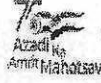 75
Azadi Ka
Amrit Mahotsav